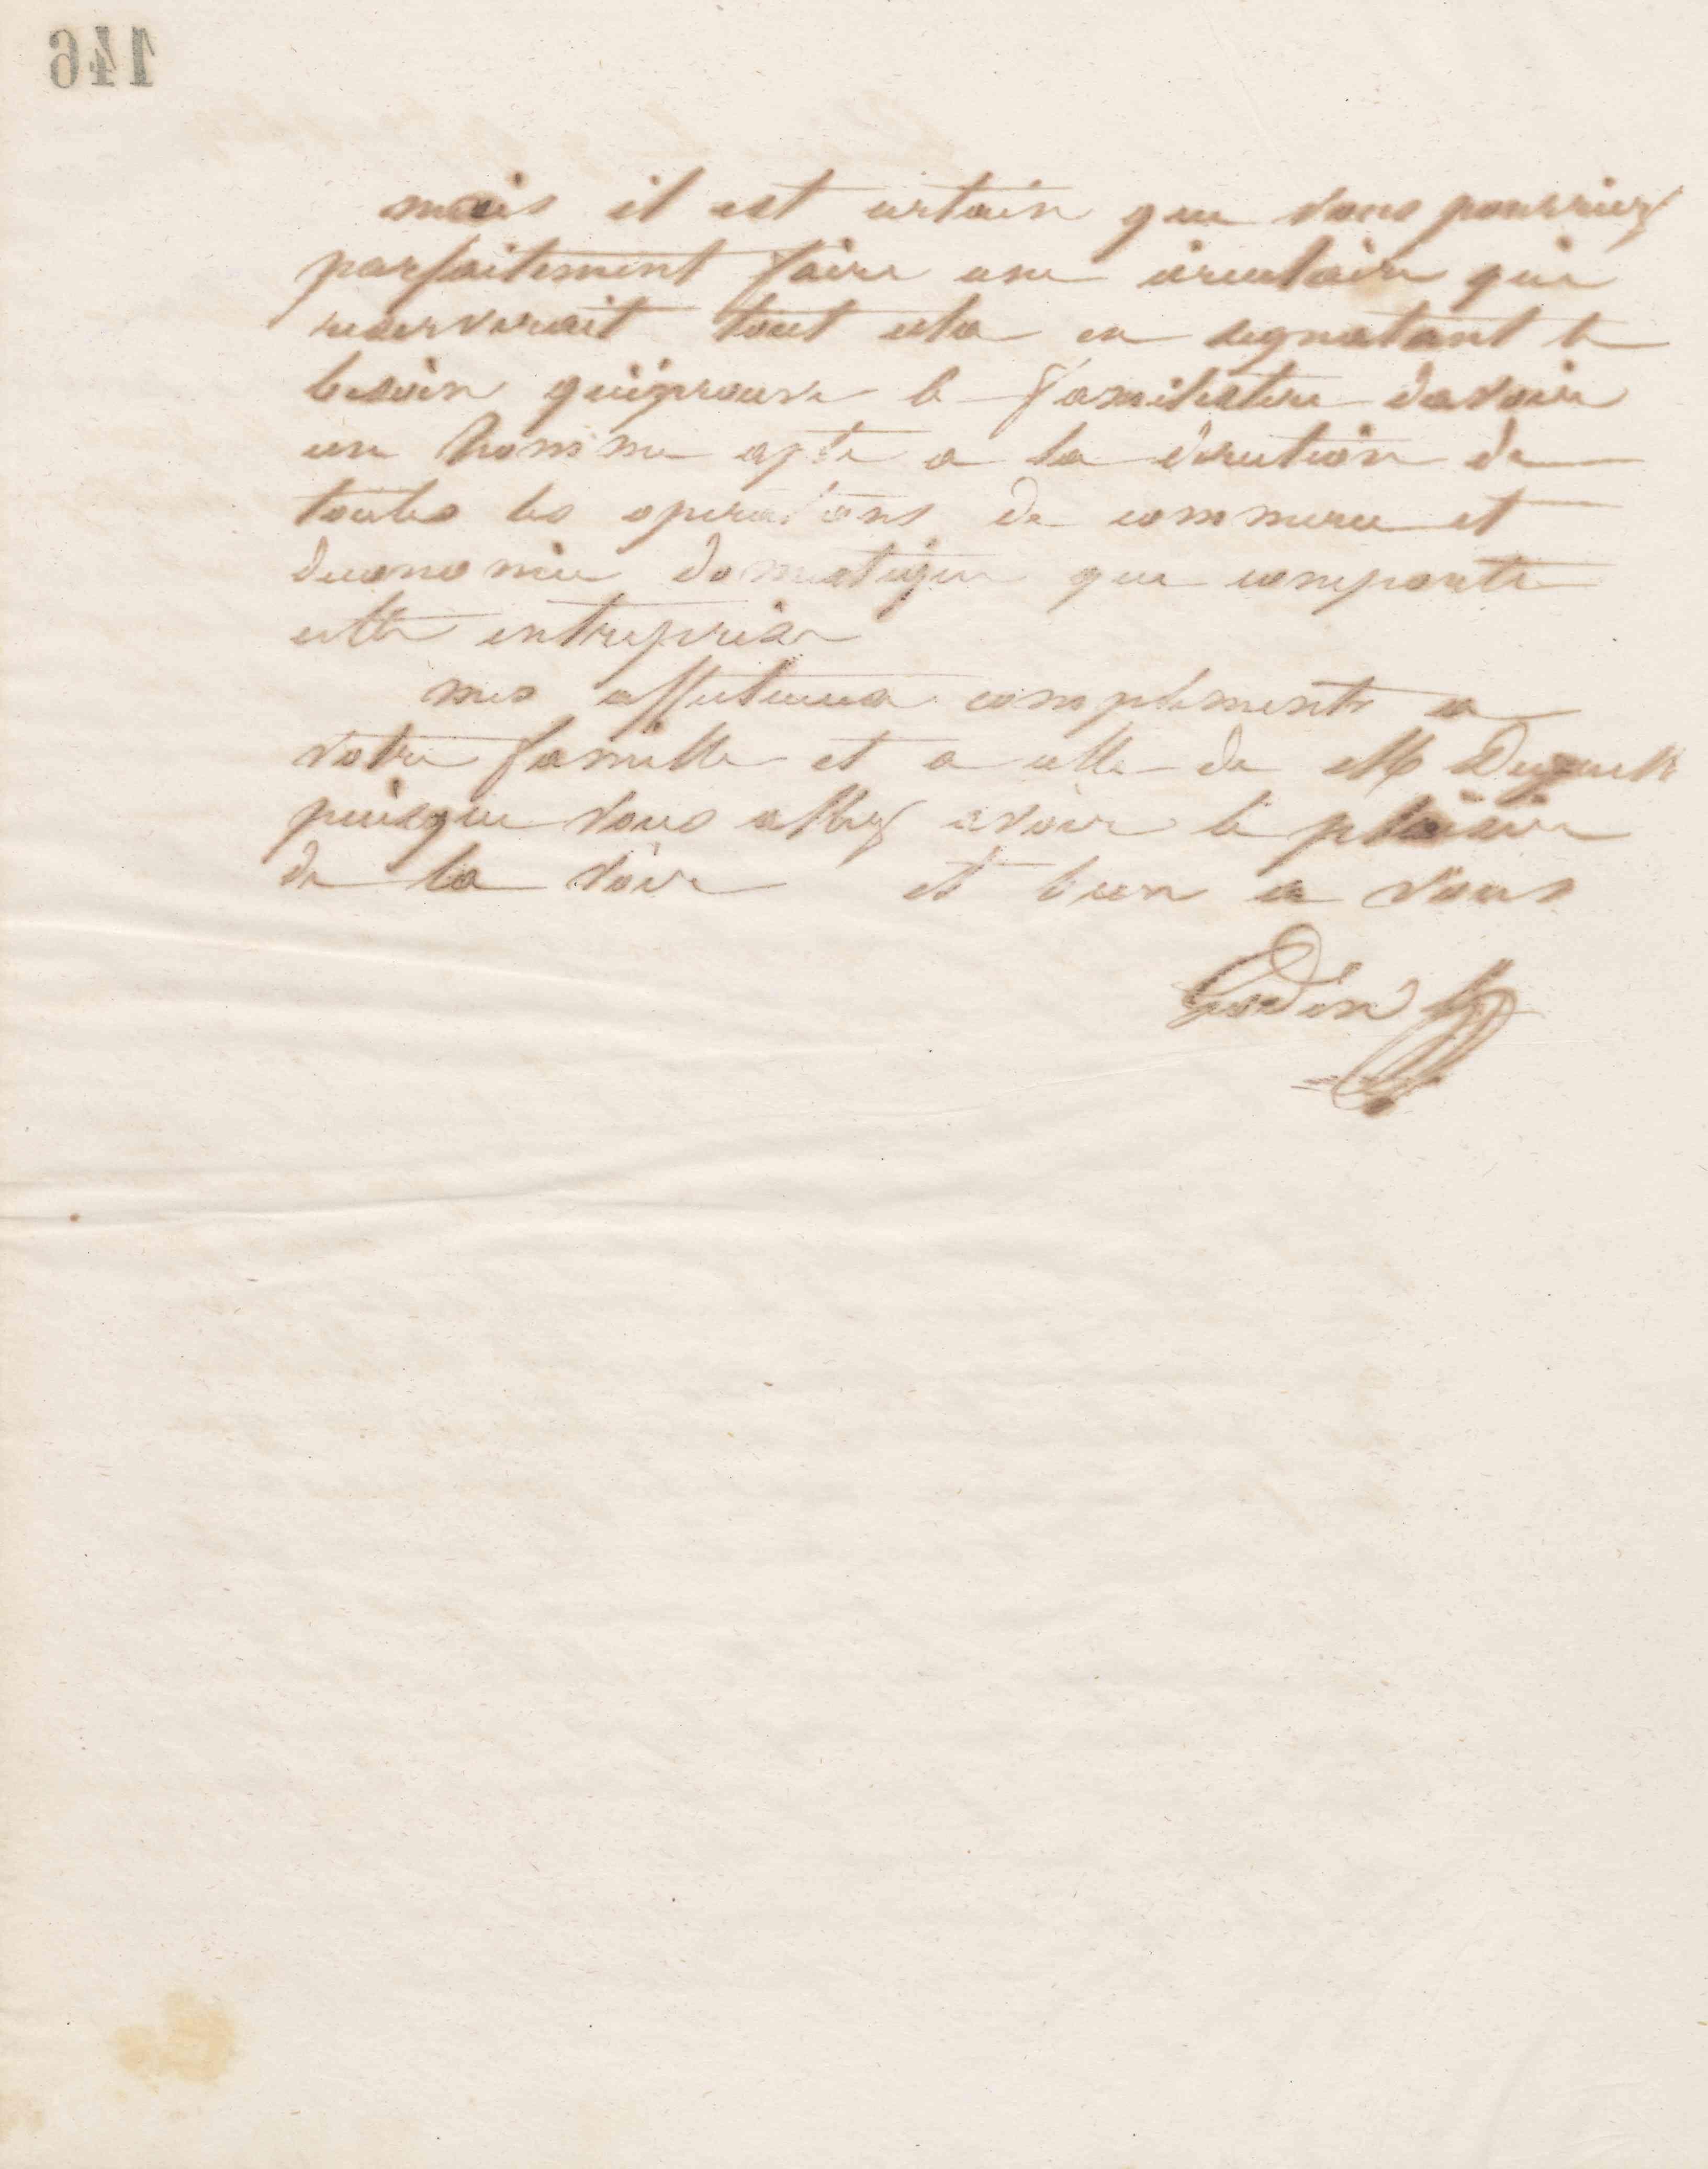 146
mais il est certain que vous pourriez
parfaitement faire une circulaire qui
reserverait tout cela en signalant le
besoin qu'éprouve le familistère davoir
un homme apte a la direction de
toutes les operations de commerce et
deconomie domestique que comporte
cette entreprise
mes affectueux compliments a
votre famille et a celle de M
puisque vous allez avoir le plaisir
de la voir et bien a vous
Godin